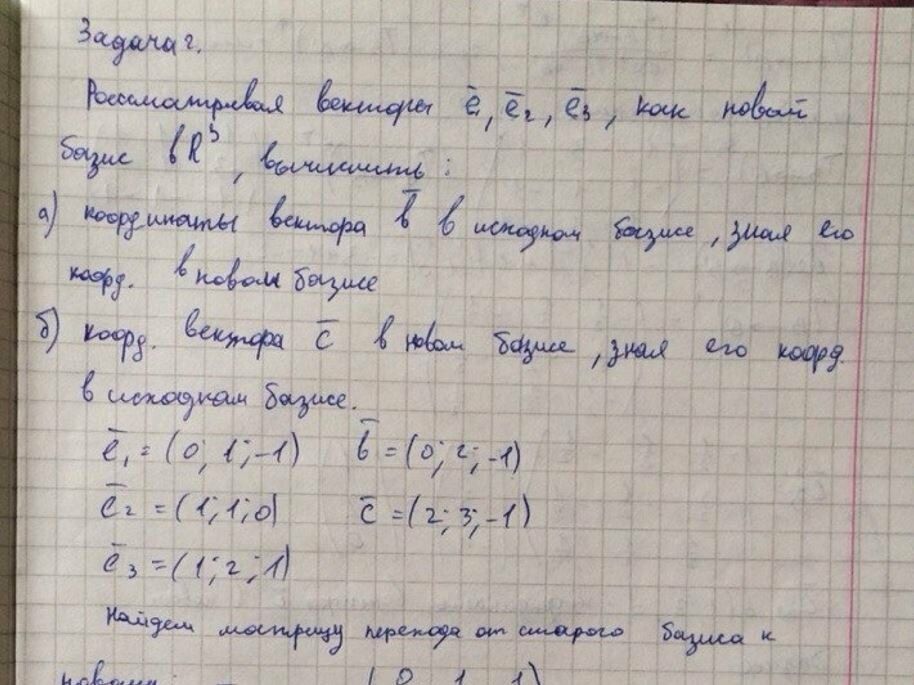 Задача 2.
Рассматривая векторы e̅₁, e̅₂, e̅₃, как новый
базис в R³, вычислить:
а) координаты вектора b̅ в исходном базисе, зная его
коорд. в новом базисе
б) коорд. вектора c̅ в новом базисе, зная его коорд.
в исходном базисе.
e̅₁ = (0; 1; -1) b̅ = (0; 2; -1)
e̅₂ = (1; 1; 0) c̅ = (2; 3; -1)
e̅₃ = (1; 2; 1)
Найдем матрицу перехода от старого базиса к
0 1 1